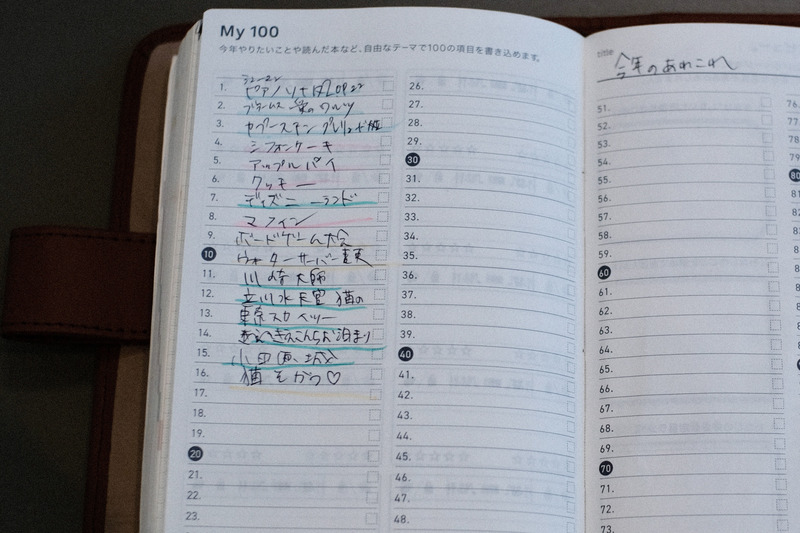 My 100
今年やりたいことや読んだ本など、自由なテーマで100の項目を書き込めます。
1. ピアノソナタ
2. ブラームス 愛のワルツ
3.
4. シフォンケーキ
5. アップルパイ
6. クッキー
7. ディズニーランド
8. マフィン
9. ボードゲーム大会
10 ウォーターサーバー変更
11. 川崎大師
12. 立川水 猫の
13. 東京スカイツリー
14. お泊まり
15. 小田原城
16. 猫をかう♡
17.
18.
19.
20
21.
22.
23.
26.
27.
28.
29.
30
31.
32.
33.
34.
35.
36.
37.
38.
39.
40
41.
42.
43.
44.
45.
46.
47.
48.
title
今年のあれこれ
51.
52.
53.
54.
55.
56.
57.
58.
59.
60
61.
62.
63.
64.
65.
66.
67.
68.
69.
70
71.
72.
73.
76.
77.
78.
79.
80